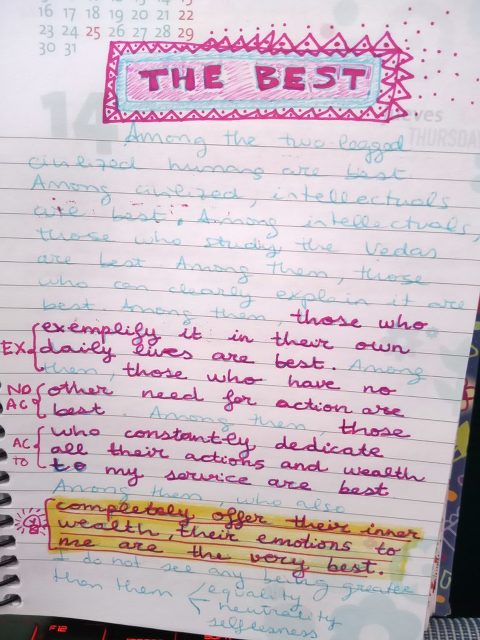 16 17 18 19 20 21 22
23 24 25 26 27 28 29
30 31
14
THURSDAY
THE BEST
Among the two legged
civilized humans are best
Among civilized, intellectuals
are best. Among intellectuals,
those who study the Vedas
are best Among them, those
who can clearly explain it are
best Among them, those who
EX exemplify it in their own
daily lives are best. Among
them, those who have no
NO other need for action are
AC best. Among them, those
AC who constantly dedicate
TO all their actions and wealth
to my service are best
Among them, who also
completely offer their inner
wealth, their emotions to
me are the very best.
I do not see any being greater
than them equality
neutrality
selflessness
F12